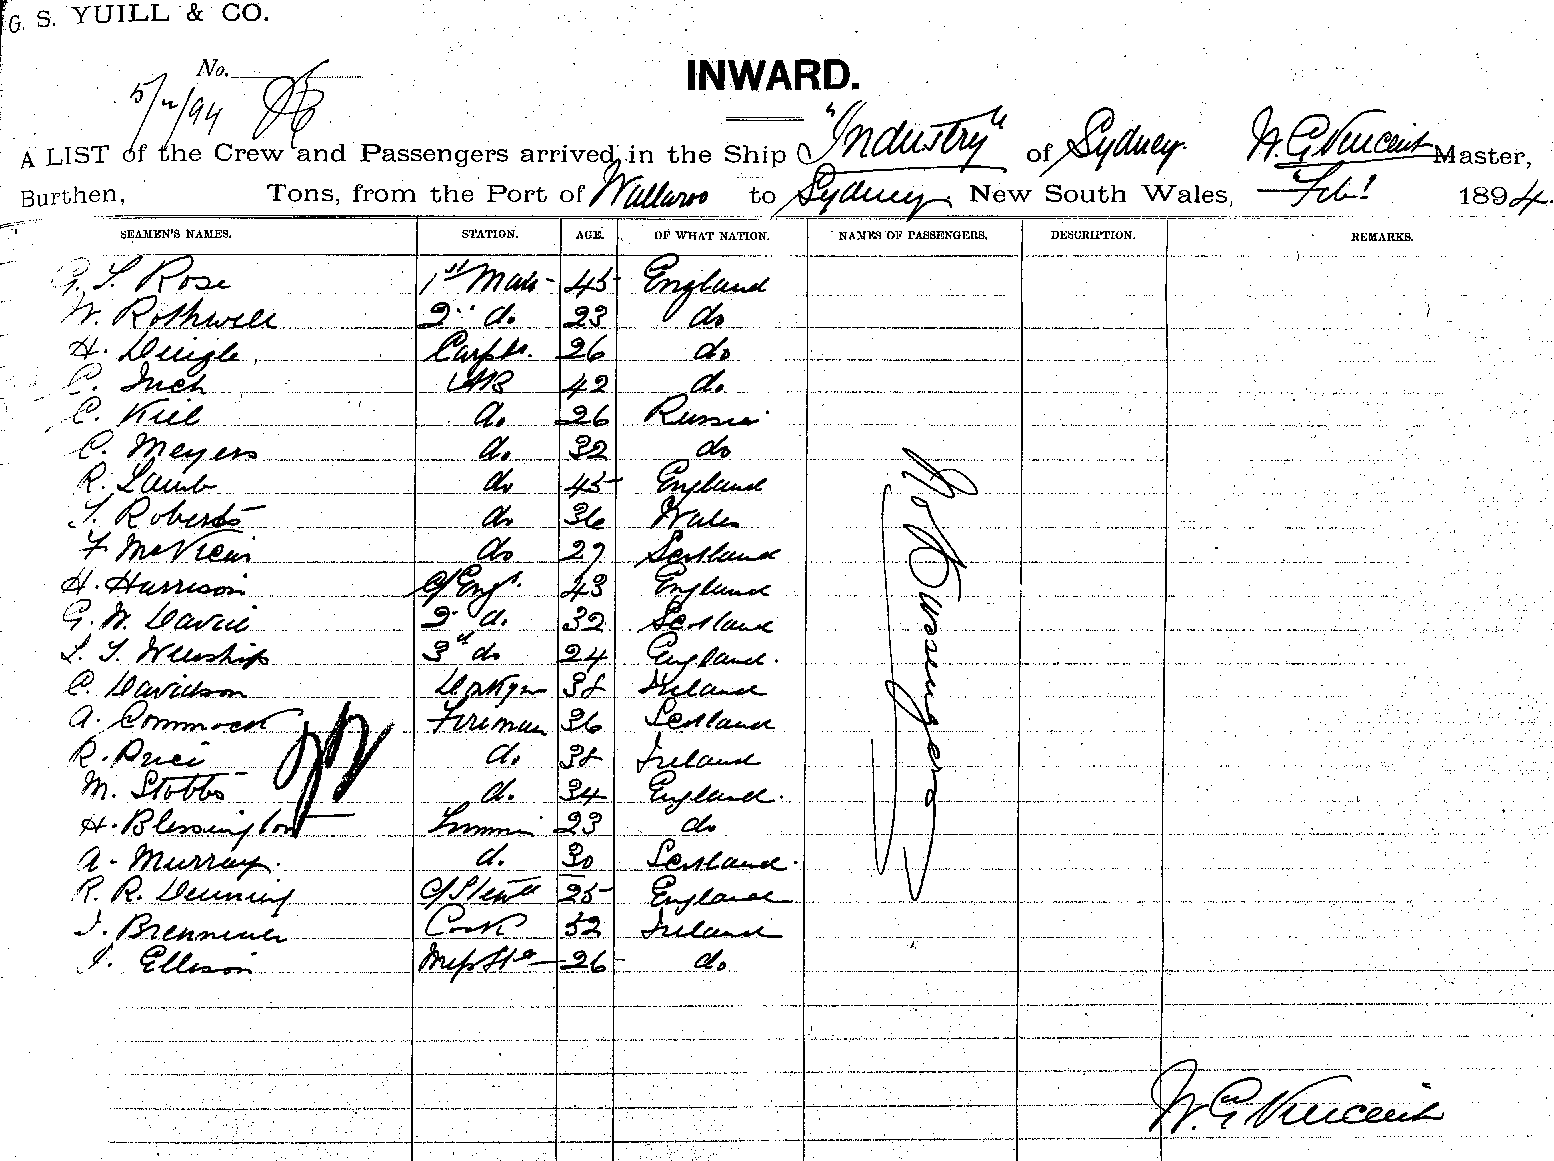 G. S. YUILL & CO.
No.
5/2/94
INWARD.
A LIST of the Crew and Passengers arrived in the Ship "Industry" of Sydney. W. G. Vincent Master,
Burthen, Tons, from the Port of Wallaroo to Sydney, New South Wales, Feb! 1894.
SEAMEN'S NAMES. STATION. AGE. OF WHAT NATION. NAMES OF PASSENGERS. DESCRIPTION. REMARKS.
Rose 1st Mate 45 England
W. Rothwell 2nd do. 23 do
H. Dingle, Carptr. 26 do
C. Inch AB 42 do.
C. Kiel do. 26 Russia
C. Meyers do. 32 do
R. Lamb do 45 England
Roberts do 36 Wales
F McVicar do 27 Scotland
H. Harrison C/Engr. 43 England
G. W. Davie 2nd do. 32 Scotland
Winship 3rd do 24 England.
C. Davidson Dkyman 38 Ireland
A. Commock Fireman 36 Scotland
R. Price do. 38 Ireland
M. Stobbs do. 34 England.
H. Blessington Trimmer 23 do
A. Murray. do. 30 Scotland.
R. R. Denning C/Stewd 25 England
Cook 52 Ireland
Ellison Mess Std 26 do
No Passengers
W. G. Vincent